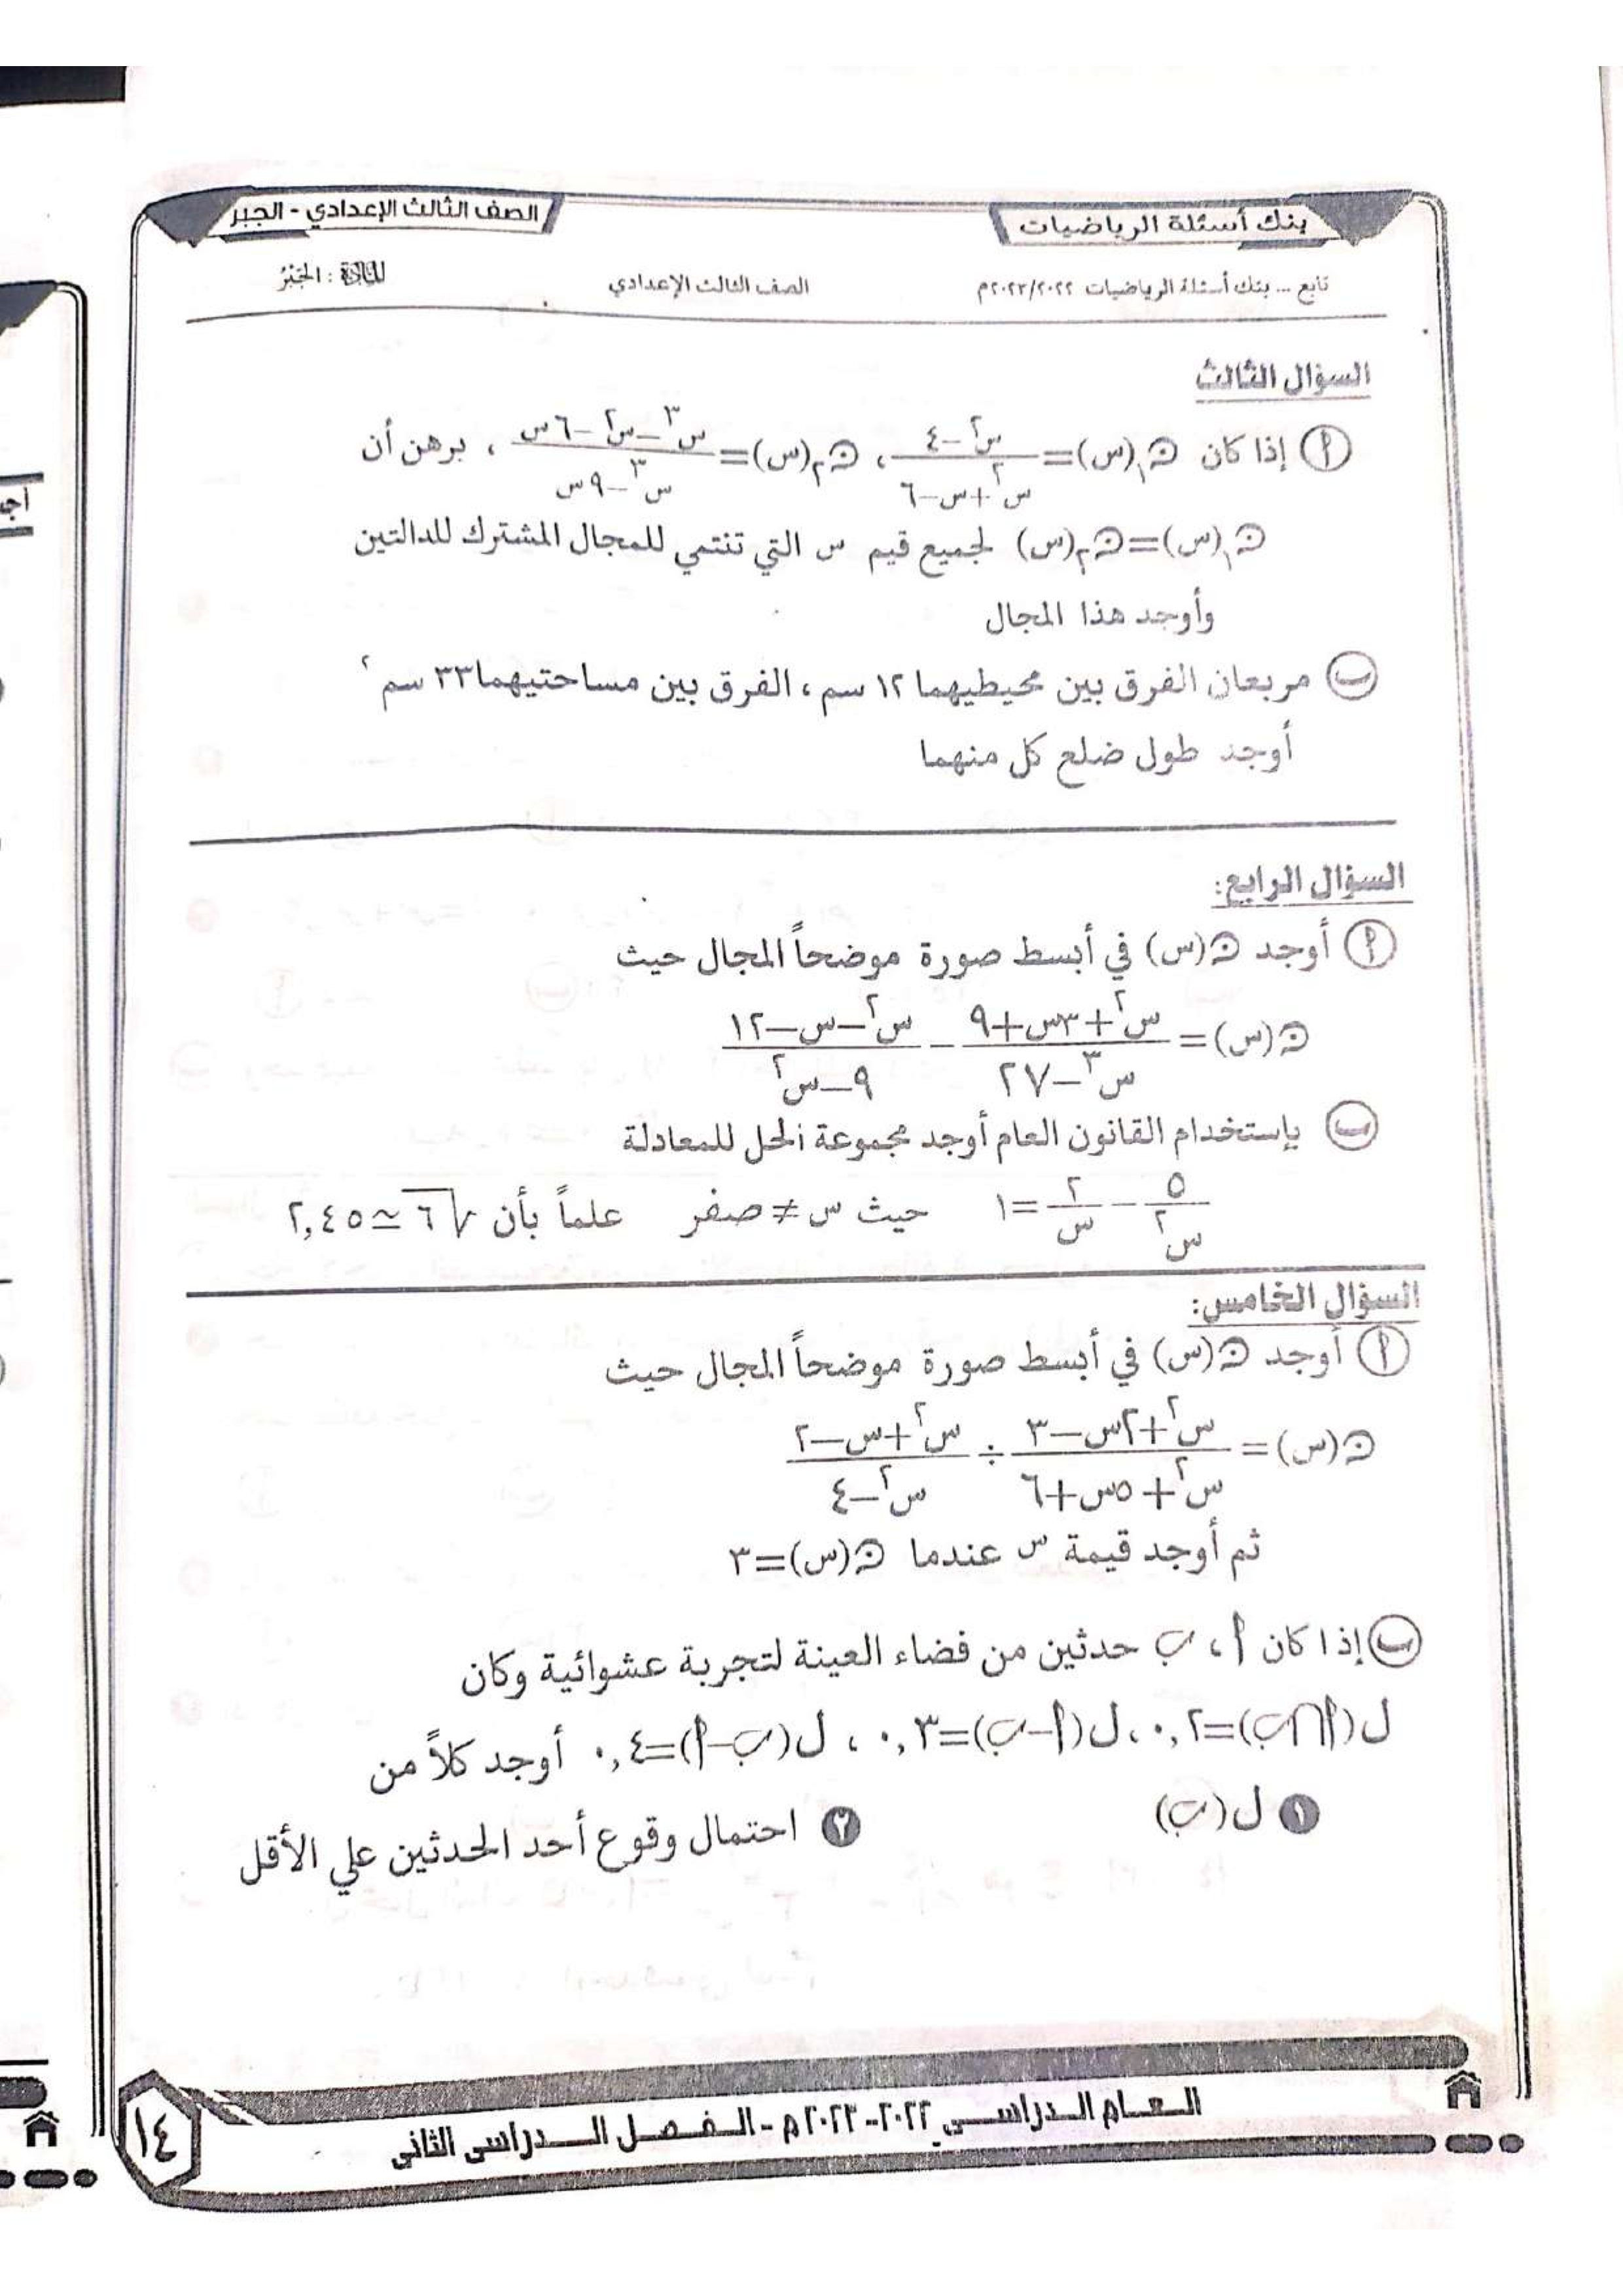 بنك أسئلة الرياضيات
الصف الثالث الإعدادي - الجبر
تابع ... بنك أسئلة الرياضيات ٢٠٢٣/٢٠٢٢م الصف الثالث الإعدادي المادة : الجبْرُ
السؤال الثالث
أ إذا كان ن١(س)=(س٢-٤)/(س٢+س-٦) ، ن٢(س)=(س٣-س٢-٦س)/(س٣-٩س) ، برهن أن
ن١(س)=ن٢(س) لجميع قيم س التي تنتمي للمجال المشترك للدالتين
وأوجد هذا المجال
ب مربعان الفرق بين محيطيهما ١٢ سم ، الفرق بين مساحتيهما ٣٣ سم٢
أوجد طول ضلع كل منهما
السؤال الرابع:
أ أوجد ن(س) في أبسط صورة موضحاً المجال حيث
ن(س)= (س٢+٣س+٩)/(س٣-٢٧) - (س٢-س-١٢)/(٩-س٢)
ب بإستخدام القانون العام أوجد مجموعة الحل للمعادلة
٥/س٢ - ٢/س =١ حيث س≠صفر علماً بأن √٦ ≃٢,٤٥
السؤال الخامس:
أ أوجد ن(س) في أبسط صورة موضحاً المجال حيث
ن(س)= (س٢+٢س-٣)/(س٢+٥س+٦) ÷ (س٢+س-٢)/(س٢-٤)
ثم أوجد قيمة س عندما ن(س)=٣
ب إذا كان أ ، ب حدثين من فضاء العينة لتجربة عشوائية وكان
ل(أ∩ب)=٠,٢ ، ل(أ-ب)=٠,٣ ، ل(ب-أ)=٠,٤ أوجد كلاً من
١ ل(ب) ٢ احتمال وقوع أحد الحدثين علي الأقل
العام الدراسي ٢٠٢٢-٢٠٢٣م - الفصل الدراسي الثاني
١٤